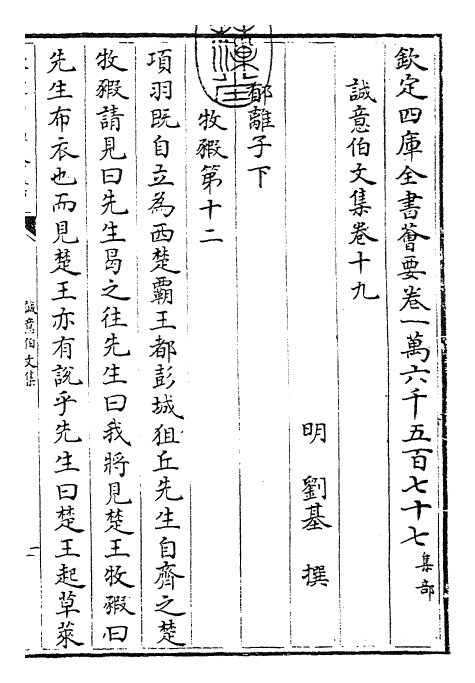 欽定四庫全書薈要卷一萬六千五百七十七 集部
誠意伯文集卷十九
明 劉基 撰
郁離子下
牧豭第十二
項羽既自立為西楚霸王都彭城狙丘先生自齊之楚
牧豭請見曰先生曷之往先生曰我將見楚王牧豭曰
先生布衣也而見楚王亦有說乎先生曰楚王起草萊
誠意伯文集